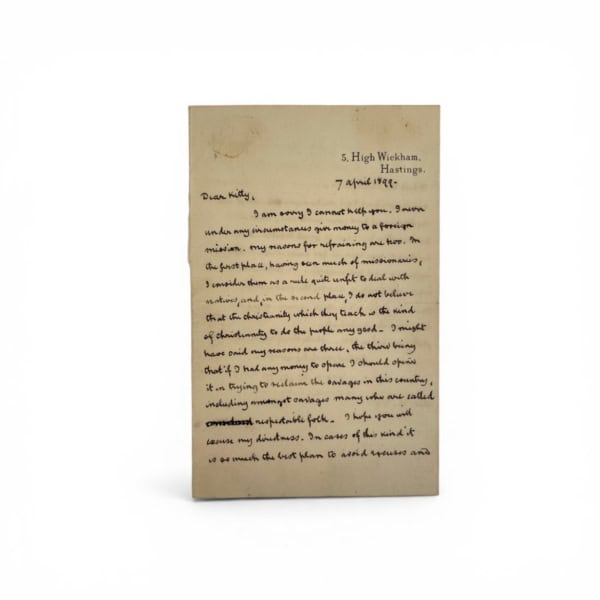 5, High Wickham,
Hastings.
7 April 1899.
Dear Kitty,
I am sorry I cannot help you. I never
under any circumstances give money to a foreign
mission. My reasons for refraining are two. In
the first place, having seen much of missionaries,
I consider them as a rule quite unfit to deal with
natives, and, in the second place, I do not believe
that the christianity which they teach is the kind
of christianity to do the people any good. I might
have said my reasons are three, the third being
that if I had any money to spare I should spend
it in trying to reclaim the savages in this country,
including amongst savages many who are called
respectable folk. I hope you will
excuse my directness. In cases of this kind it
is so much the best plan to avoid excuses and